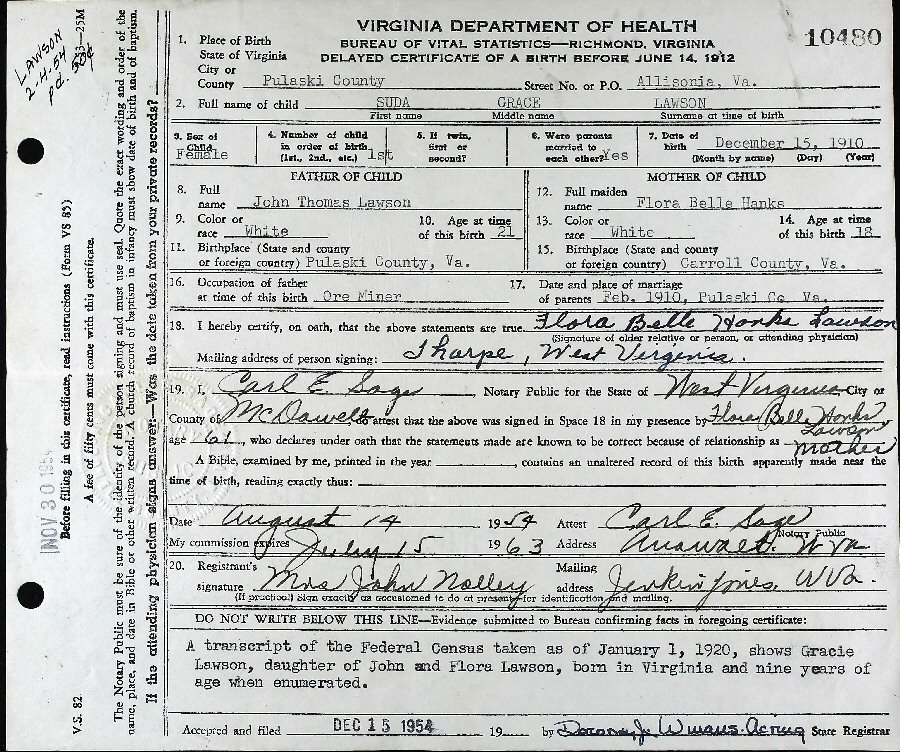 LAWSON
2.H.54
pd.
VIRGINIA DEPARTMENT OF HEALTH
BUREAU OF VITAL STATISTICS—RICHMOND, VIRGINIA
DELAYED CERTIFICATE OF A BIRTH BEFORE JUNE 14, 1912
10480
1. Place of Birth
State of Virginia
City or
County Pulaski County Street No. or P.O. Allisonia, Va.
2. Full name of child SUDA GRACE LAWSON
First name Middle name Surname at time of birth
3. Sex of Child Female
4. Number of child in order of birth (1st., 2nd., etc.) 1st
5. If twin, first or second?
6. Were parents married to each other? Yes
7. Date of birth December 15, 1910
(Month by name) (Day) (Year)
FATHER OF CHILD
8. Full name John Thomas Lawson
9. Color or race White 10. Age at time of this birth 21
11. Birthplace (State and county
or foreign country) Pulaski County, Va.
MOTHER OF CHILD
12. Full maiden name Flora Belle Hanks
13. Color or race White 14. Age at time of this birth 18
15. Birthplace (State and county
or foreign country) Carroll County, Va.
16. Occupation of father
at time of this birth Ore Miner
17. Date and place of marriage
of parents Feb. 1910, Pulaski Co. Va.
18. I hereby certify, on oath, that the above statements are true. Flora Belle Hanks Lawson
(Signature of older relative or person, or attending physician)
Mailing address of person signing: Tharpe, West Virginia.
19. I, Carl E. Sage, Notary Public for the State of West Virginia, City or
County of McDowell, do attest that the above was signed in Space 18 in my presence by Flora Belle Hanks Lawson
age 61, who declares under oath that the statements made are known to be correct because of relationship as mother
A Bible, examined by me, printed in the year , contains an unaltered record of this birth apparently made near the
time of birth, reading exactly thus:
Date August 14 1954 Attest Carl E. Sage
Notary Public
My commission expires July 15 1963 Address Anawalt, W Va
20. Registrar's signature Mrs John Nolley Mailing address Jenkinjones, W Va.
(If practical) Sign exactly as accustomed to do at present—for identification and mailing.
DO NOT WRITE BELOW THIS LINE—Evidence submitted to Bureau confirming facts in foregoing certificate:
A transcript of the Federal Census taken as of January 1, 1920, shows Gracie
Lawson, daughter of John and Flora Lawson, born in Virginia and nine years of
age when enumerated.
Accepted and filed DEC 15 1954 19 by Acting State Registrar
V.S. 82
NOV 30 1954
Before filling in this certificate, read instructions (form VS 83)
A fee of fifty cents must come with this certificate.
The Notary Public must be sure of the identity of the person signing and must use seal. Quote the exact wording and order of the
name, place, and date in Bible or other written record. A church record of baptism in infancy must show date of birth and of baptism.
If the attending physician signs answer:—Was the date taken from your private records?